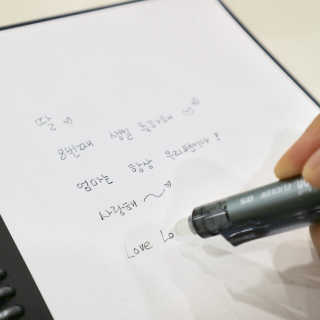 딸 ♡
8번째 생일 축하해 ♡
엄마는 항상 우리편이야!
사랑해 ~♡
Love Lo